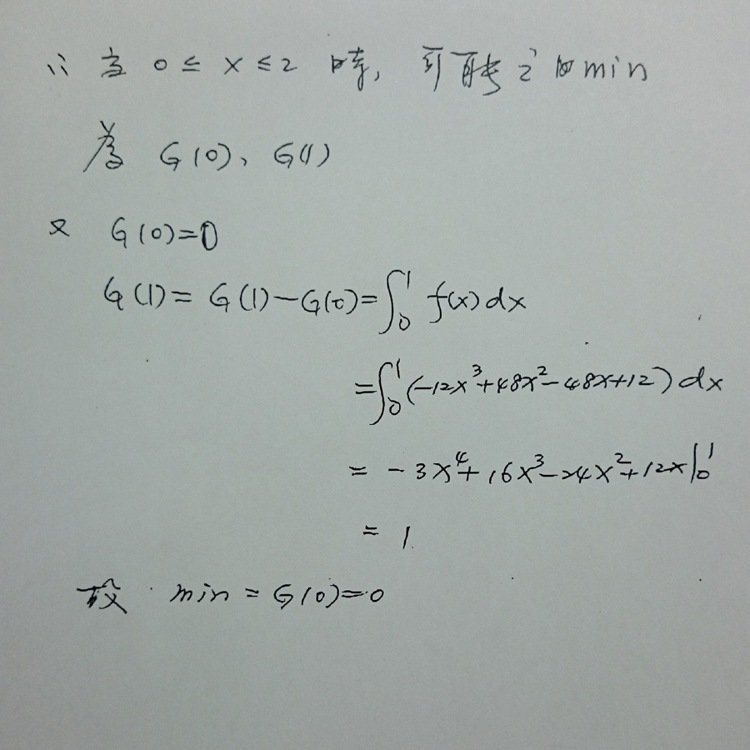 ∴ 當 0 ≤ x ≤ 2 時, 可能之的min
為 G(0)、G(1)
又 G(0)=0
G(1)=G(1)-G(0)=∫₀¹ f(x)dx
=∫₀¹(-12x³+48x²-48x+12)dx
= -3x⁴+16x³-24x²+12x|₀¹
= 1
故 min = G(0)=0